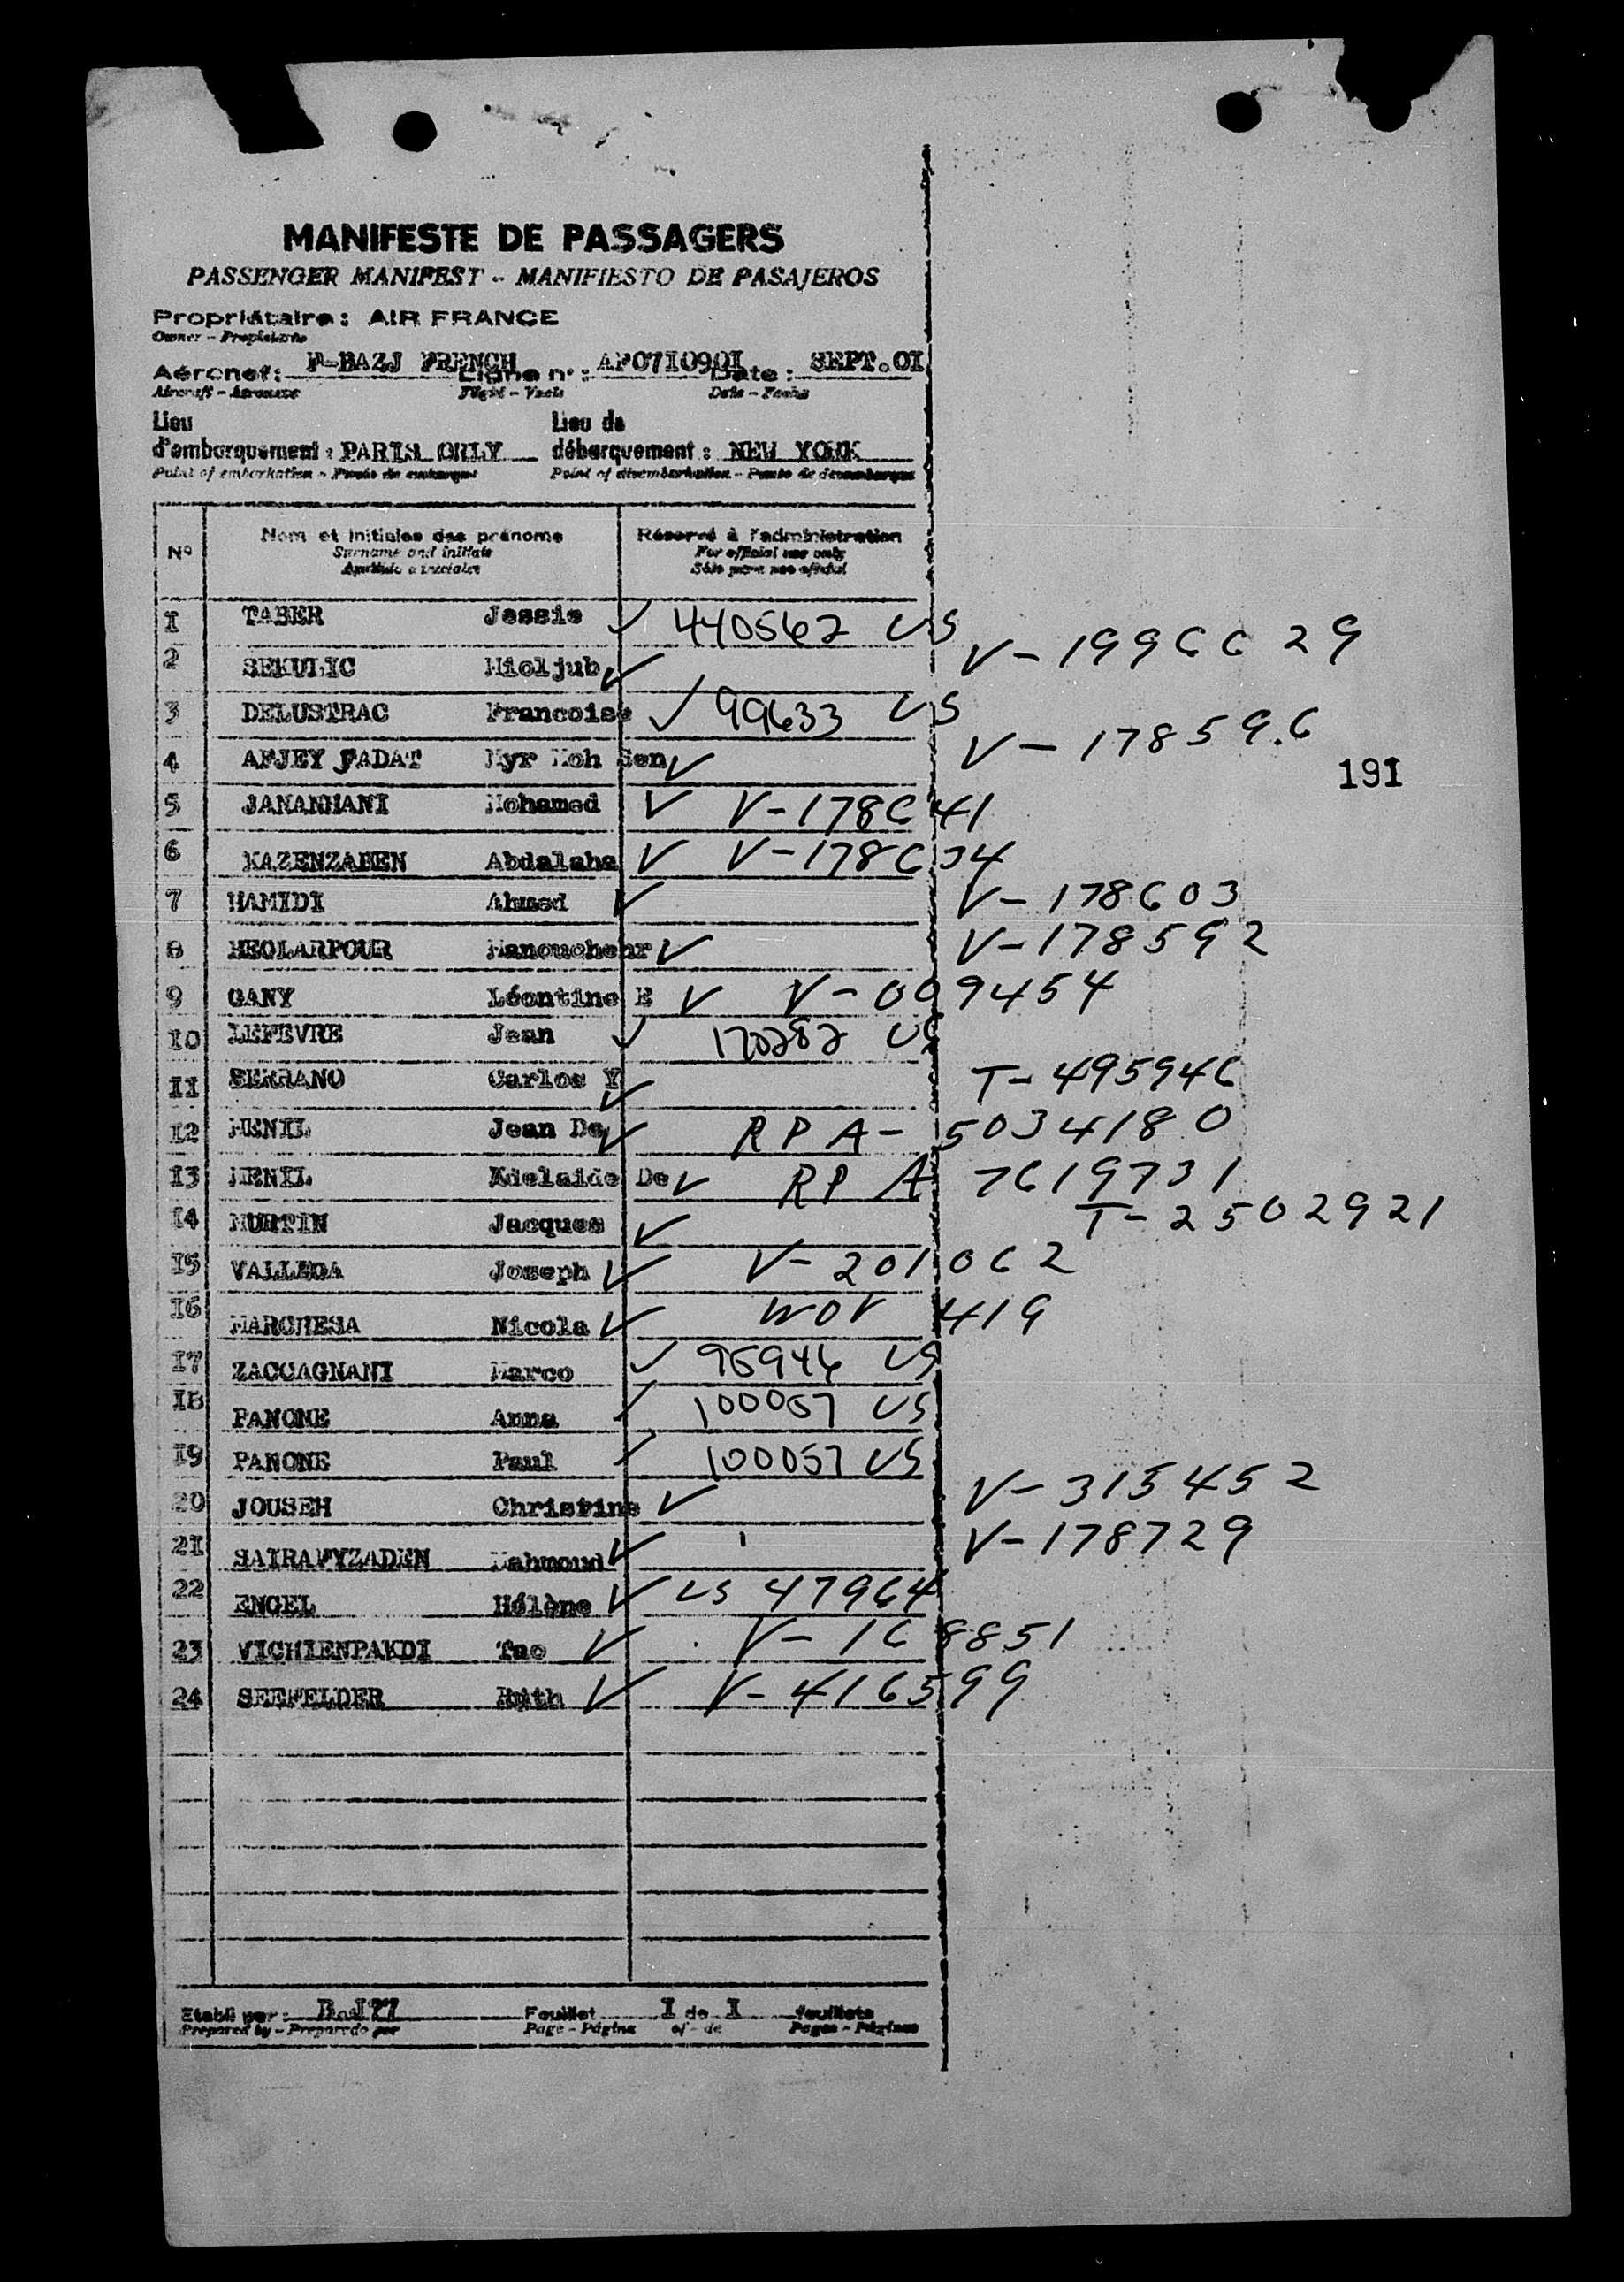 MANIFESTE DE PASSAGERS
PASSENGER MANIFEST - MANIFIESTO DE PASAJEROS
Propriétaire: AIR FRANCE
Owner - Propietario
Aéronef: F-BAZJ FRENCH Ligne n°: AF0710901 Date: SEPT.0I
Aircraft - Aeronave Flight - Vuelo Date - Fecha
Lieu Lieu de
d'embarquement: PARIS ORLY débarquement: NEW YORK
Point of embarkation - Punto de embarque Point of disembarkation - Punto de desembarque
N° Nom et initiales des prénoms Réservé à l'administration
Surname and initials For official use only
Apellido e iniciales Sólo para uso oficial
I TABER Jessie ✓ 440562 US
2 SEKULIC Mioljub ✓ V-1996629
3 DELUSTRAC Francoise ✓ 99633 US
4 AFJEY FADAT Myr Moh Sen ✓ V-178596
19I
5 JANANHANI Mohamed ✓ V-178641
6 KAZENZADEN Abdalaha ✓ V-178634
7 HAMIDI Ahmed ✓ V-178603
8 MEOLARPOUR Manouchehr ✓ V-178592
9 GANY Léontine E ✓ V-009454
IO LEFEVRE Jean ✓ 170282 US
II SERRANO Carlos Y ✓ T-495946
I2 MENIL Jean De ✓ RPA-5034180
I3 MENIL Adelaide De ✓ RPA 7619731
I4 MURTIN Jacques ✓ T-2502921
I5 VALLEGA Joseph ✓ V-201062
I6 MARCHESA Nicola ✓ WOV 419
I7 ZACCAGNANI Marco ✓ 95946 US
I8 PANONE Anna ✓ 100057 US
I9 PANONE Paul ✓ 100057 US
20 JOUSEH Christine ✓ V-315452
2I SAIRAFYZADEN Mahmoud ✓ V-178729
22 ENGEL Hélène ✓ US 47964
23 VICHIENPAKDI Tao ✓ V-168851
24 SEEFELDER Ruth ✓ V-416599
Etabli par: Feuillet I de I feuillets
Prepared by - Preparado por Page - Página of - de Pages - Páginas